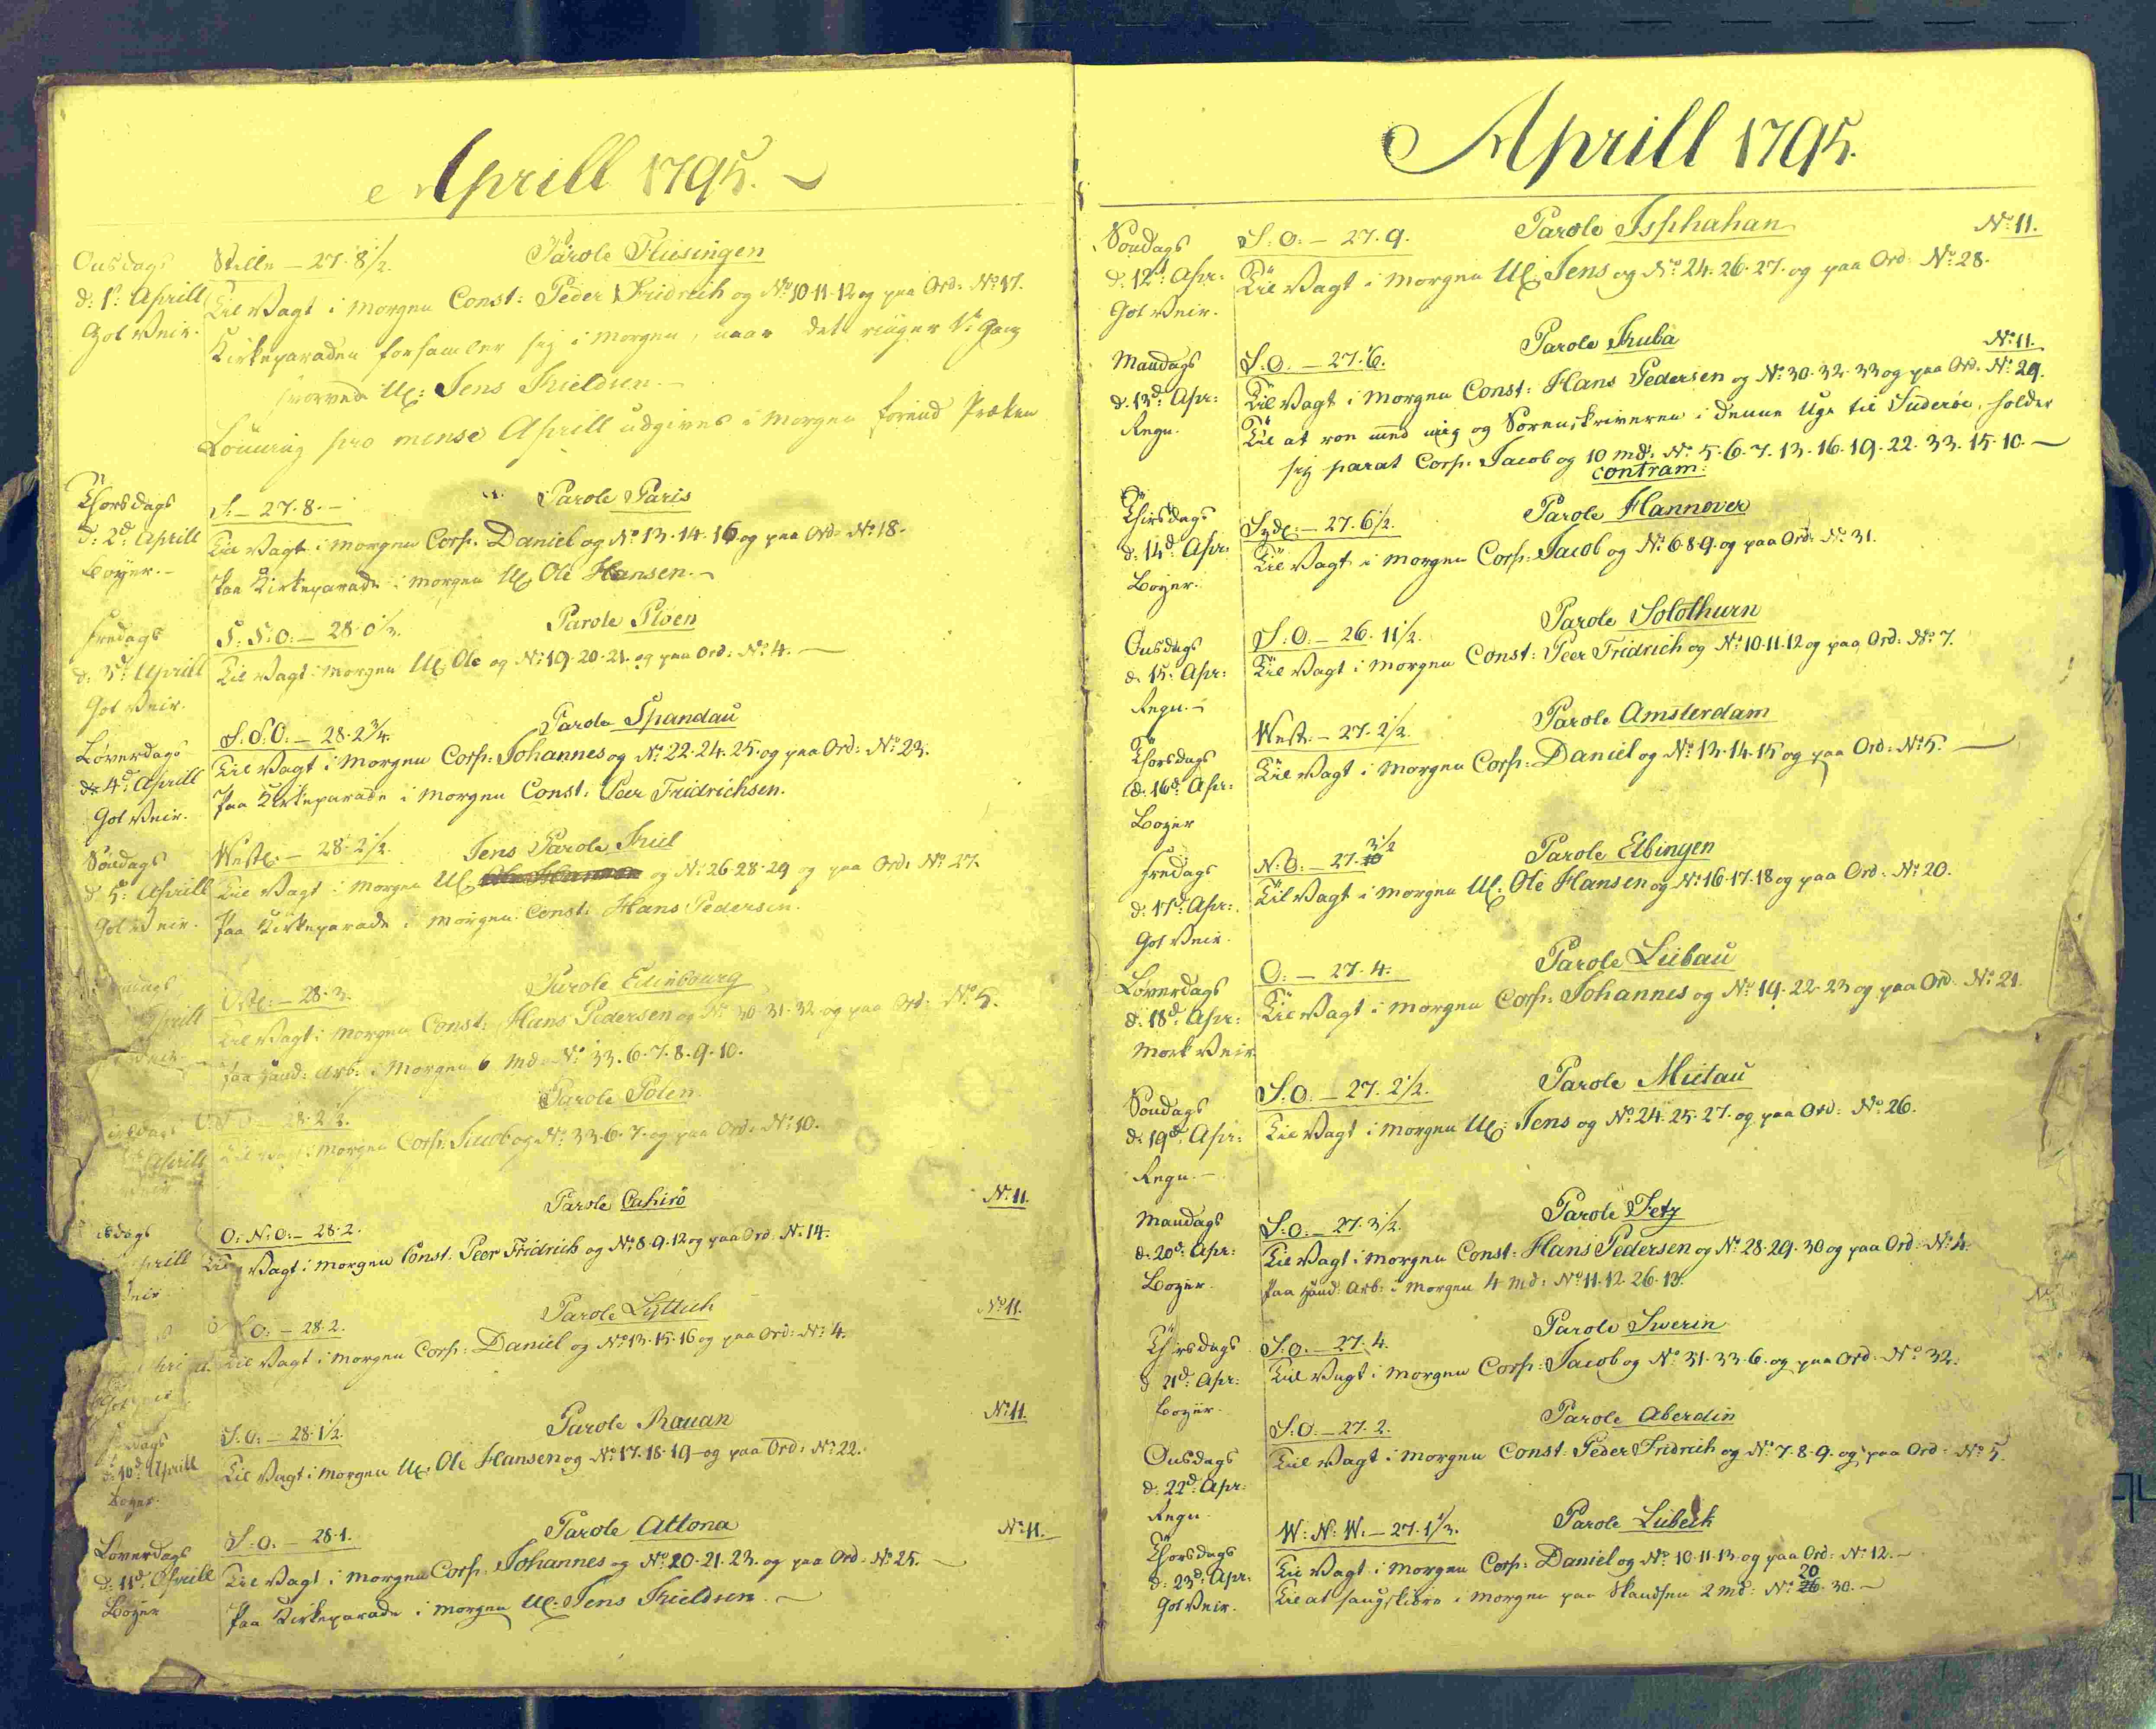 Aprill 1795.
Onsdags Stille – 27. 8½. Parole Fliesingen
d: 1ste Aprill Til Vagt i Morgen Const: Peder Fridrich og No 10. 11. 12 og paa Ord: No 17.
Got Veir. Kirkeparaden forsamler sig i Morgen, naar det ringer 1te Gang
hvorved UC: Jens Kieldsen.
Lönning pro mense Aprill udgives i Morgen forend Præken
Thorsdags S: – 27. 8. – Parole Paris
d: 2d Aprill Til Vagt i Morgen Corp: Daniel og No 13. 14. 16 og paa Ord: No 18.
Boyer. – Paa Kirkeparade i Morgen UC Ole Hansen. –
Fredags S: S: O: – 28. 0⅓. Parole Ploen
d: 3d Aprill Til Vagt i Morgen UC Ole og No 19. 20. 21. og paa Ord: No 4. –
Got Veir.
Løverdags S. S. O: – 28. 2¾. Parole Spandau
d: 4d Aprill Til Vagt i Morgen Corp: Johannes og No 22. 24. 25. og paa Ord: No 23.
Got Veir. Paa Kirkeparade i Morgen Const: Peer Fridrichsen.
Søndags Westl: – 28. 2½. Jens Parole Kiel
d. 5. Aprill Til Vagt i Morgen UC og No 26. 28. 29 og paa Ord: No 27.
Got Veir. Paa Kirkeparade i Morgen Const: Hans Pedersen.
Ostl: – 28. 3. Parole Edinbourg
Til Vagt i Morgen Const: Hans Pedersen og No 30. 31. 32 og paa Ord: No 5.
Paa Haand: Arb: i Morgen 6 Md: No 33. 6. 7. 8. 9. 10.
28. 2½. Parole Polen
Aprill Til Vagt i Morgen Corp: Jacob og No 33. 6. 7. og paa Ord: No 10.
O: N: O: – 28. 2. Parole Cahirö No 11.
Til Vagt i Morgen Const: Peer Fridrich og No 8. 9. 12 og paa Ord: No 14.
O: – 28. 2. Parole Lyttich No 11.
Til Vagt i Morgen Corp: Daniel og No 13. 15. 16 og paa Ord: No 4.
S. O: – 28. 1½. Parole Rouan No 11.
d: 10d Aprill Til Vagt i Morgen UC: Ole Hansen og No 17. 18. 19 og paa Ord: No 22.
Boyer.
Løverdags S. O. – 28. 1. Parole Altona No 11.
d: 11d Aprill Til Vagt i Morgen Corp: Johannes og No 20. 21. 23. og paa Ord: No 25. –
Boyer Paa Kirkeparade i Morgen UC: Jens Kieldsen. –
Aprill 1795.
Søndags S: O: – 27. 9. Parole Isphahan No 11.
d: 12d Apr: Til Vagt i Morgen UC: Jens og No 24. 26. 27. og paa Ord: No 28.
Got Veir.
Mandags S. O. – 27. 6. Parole Kuba No 11.
d. 13d Apr: Til Vagt i Morgen Const: Hans Pedersen og No 30. 32. 33 og paa Ord: No 29.
Regn. Til at roe med mig og Sorenskriveren i denne Uge til Suderöe, holder
sig parat Corp: Jacob og 10 md: No 5. 6. 7. 13. 16. 19. 22. 33. 15. 10. –
contram:
Thirsdags Sydl: – 27. 6½. Parole Hannover
d: 14d Apr: Til Vagt i Morgen Corp: Jacob og No 6. 8. 9. og paa Ord: No 31.
Boyer.
Onsdags S: O: – 26. 11½. Parole Solothurn
d. 15. Apr: Til Vagt i Morgen Const: Peer Fridrich og No 10. 11. 12 og paa Ord: No 7.
Regn. –
Thorsdags West. – 27. 2½. Parole Amsterdam
d. 16d Apr: Til Vagt i Morgen Corp: Daniel og No 13. 14. 15 og paa Ord: No 5. –
Boyer
Fredags N. O: – 27. 3½ Parole Elbingen
d: 17d Apr: Til Vagt i Morgen UC: Ole Hansen og No 16. 17. 18 og paa Ord: No 20.
Got Veir.
Løverdags O: – 27. 4. Parole Liebau
d: 18d Apr: Til Vagt i Morgen Corp: Johannes og No 19. 22. 23 og paa Ord: No 21.
Mörk Veir
Søndags S. O. – 27. 2½. Parole Mietau
d: 19d Apr: Til Vagt i Morgen UC: Jens og No 24. 25. 27. og paa Ord: No 26.
Regn. –
Mandags S. O. – 27. 3½. Parole Fetz
d: 20d Apr: Til Vagt i Morgen Const: Hans Pedersen og No 28. 29. 30 og paa Ord: No 4.
Boyer. Paa Haand: Arb: i Morgen 4 md: No 11. 12. 26. 13.
Thirsdags S: O. – 27. 4. Parole Swerin
d 21d Apr: Til Vagt i Morgen Corp: Jacob og No 31. 33. 6. og paa Ord: No 32.
Boyer.
Onsdags S: O. – 27. 2. Parole Aberdin
d: 22d Apr: Til Vagt i Morgen Const: Peder Fridrich og No 7. 8. 9. og paa Ord: No 5.
Regn.
Thorsdags W: N: W. – 27. 1⅓. Parole Lübeck
d: 23d Apr: Til Vagt i Morgen Corp: Daniel og No 10. 11. 13 og paa Ord: No 12. –
Got Veir. Til at i Morgen paa Skandsen 2 md: No 20 30. –